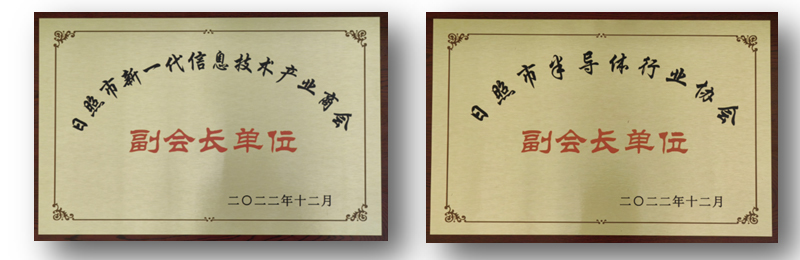 日照市新一代信息技术产业商会
副会长单位
二〇二二年十二月
日照市半导体行业协会
副会长单位
二〇二二年十二月